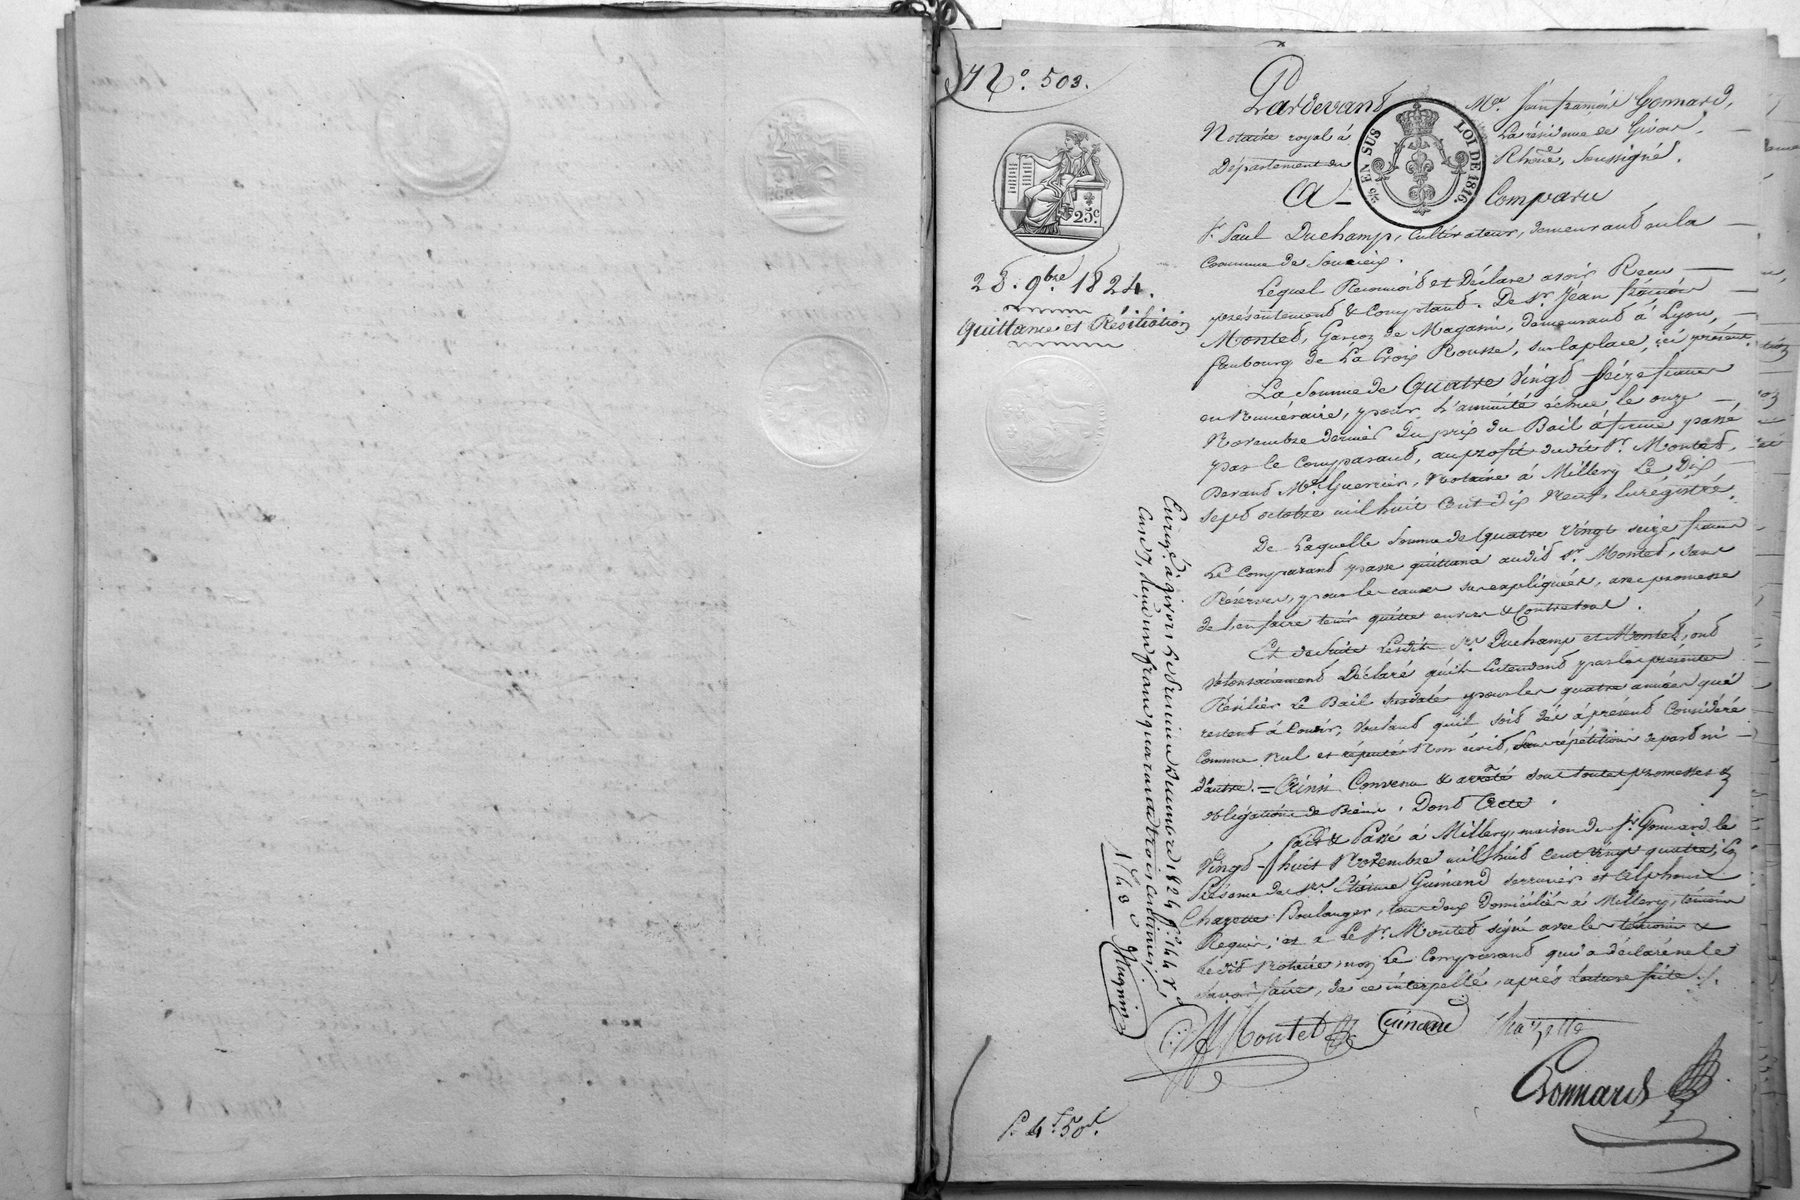 N.° 503.
25 c.
28. 9bre 1824.
Quittance et Résiliation
Pardevant Me. Jean françois Gonnard,
Notaire royal à La résidence de Givors,
Département du Rhône, Soussigné.
EN SUS LOI DE 1816.
A Comparu
Sr. Paul Duchamp, Cultivateur, demeurant en la
Commune de Soucieu.
Lequel Reconnoit et Déclare avoir Reçu
présentement & Comptant. De Sr. Jean françois
Montet, Garçon de Magasin, demeurant à Lyon,
faubourg de La Croix Rousse, sur la place, ici présent.
La Somme de Quatre Vingt Seize francs
en Numéraire, pour L'annuité échue le onze
Novembre dernier du prix du Bail à ferme passé
par le Comparant, au profit dudit Sr. Montet,
Devant Me. Guerrier, Notaire à Millery Le Dix
Sept octobre mil huit Cent dix Neuf, Enrégistré.
De Laquelle Somme de Quatre Vingt seize francs
Le Comparant passe quittance audit Sr. Montet, sans
Réserves, pour les causes sus expliquées, avec promesse
de l'en faire tenir quitte envers & Contre tous.
Et de Suite Lesdits Srs. Duchamp et Montet, ont
Volontairement Déclaré qu'ils Entendent par les présentes
Résilier Le Bail susdaté pour les quatre années qui
restent à Courir, Voulant qu'il soit dès à présent Considéré
Comme Nul et réputé Non écrit, Sans répétition de part ni
d'autre. = Ainsi Convenu & arrêté sous toutes promesses &
obligations de Biens. Dont Acte.
Fait & Passé à Millery, maison du Sr. Gonnard le
Vingt-huit Novembre mil huit cent vingt quatre, En
Présence des Srs. Etienne Guinand serrurier et Alphonse
Chazette Boulanger, tous deux Domiciliés à Millery, témoins
Requis, et a Le Sr. Montet signé avec les témoins &
Ledit Notaire, non Le Comparant qui a déclaré ne le
Savoir faire, de ce interpellé, après lecture faite.
Montet Guinand Chazette
Gonnard
Enregé. à givors Le Premier Décembre 1824 fo. 144 ro.
Case 7, Reçu un franc quarante trois centimes.
1 f 43 c Mugnier
P. 4 f. 50 c.